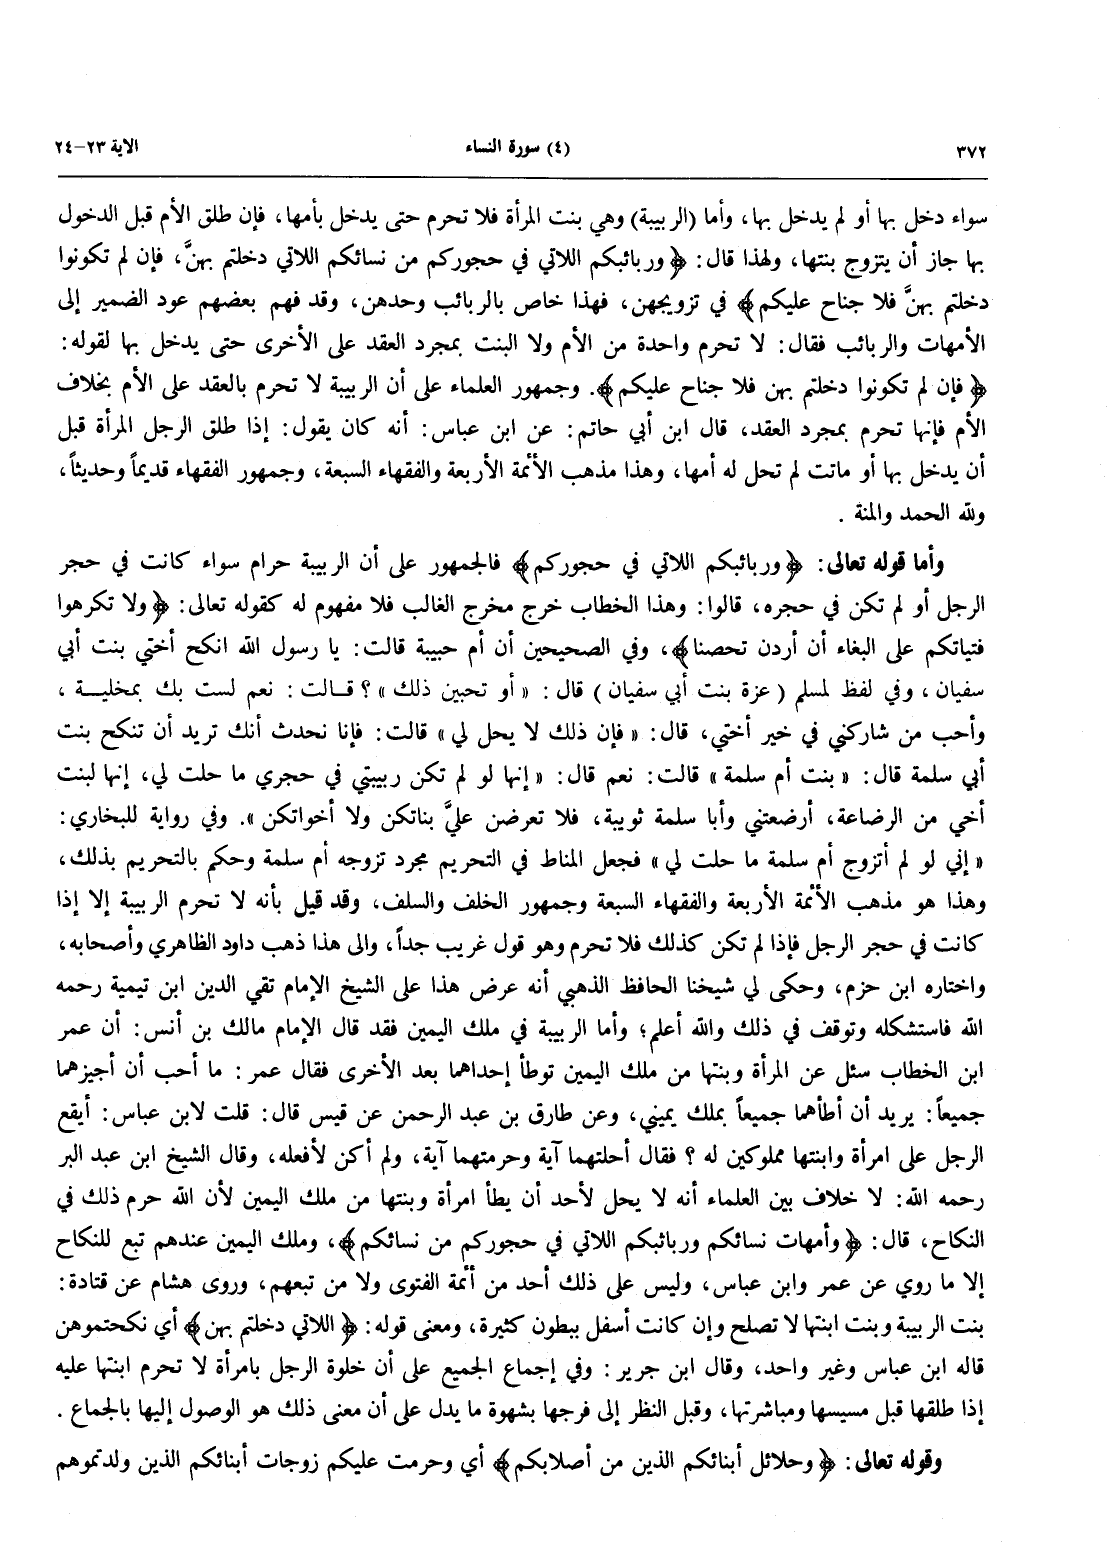 ٣٧٢ (٤) سورة النساء الاية ٢٣-٢٤
سواء دخل بها أو لم يدخل بها، وأما (الربيبة) وهي بنت المرأة فلا تحرم حتى يدخل بأمها، فإن طلق الأم قبل الدخول
بها جاز أن يتزوج بنتها، ولهذا قال: ﴿وربائبكم اللاتي في حجوركم من نسائكم اللاتي دخلتم بهنَّ، فإن لم تكونوا
دخلتم بهنَّ فلا جناح عليكم﴾ في تزويجهن، فهذا خاص بالربائب وحدهن، وقد فهم بعضهم عود الضمير إلى
الأمهات والربائب فقال: لا تحرم واحدة من الأم ولا البنت بمجرد العقد على الأخرى حتى يدخل بها لقوله:
﴿فإن لم تكونوا دخلتم بهن فلا جناح عليكم﴾. وجمهور العلماء على أن الربيبة لا تحرم بالعقد على الأم بخلاف
الأم فإنها تحرم بمجرد العقد، قال ابن أبي حاتم: عن ابن عباس: أنه كان يقول: إذا طلق الرجل المرأة قبل
أن يدخل بها أو ماتت لم تحل له أمها، وهذا مذهب الأئمة الأربعة والفقهاء السبعة، وجمهور الفقهاء قديماً وحديثاً،
ولله الحمد والمنة .
وأما قوله تعالى: ﴿وربائبكم اللاتي في حجوركم﴾ فالجمهور على أن الربيبة حرام سواء كانت في حجر
الرجل أو لم تكن في حجره، قالوا: وهذا الخطاب خرج مخرج الغالب فلا مفهوم له كقوله تعالى: ﴿ولا تكرهوا
فتياتكم على البغاء أن أردن تحصنا﴾، وفي الصحيحين أن أم حبيبة قالت: يا رسول الله انكح أختي بنت أبي
سفيان، وفي لفظ لمسلم (عزة بنت أبي سفيان) قال: «أو تحبين ذلك»؟ قالت: نعم لست بك بمخلية،
وأحب من شاركني في خير أختي، قال: «فإن ذلك لا يحل لي» قالت: فإنا نحدث أنك تريد أن تنكح بنت
أبي سلمة قال: «بنت أم سلمة» قالت: نعم قال: «إنها لو لم تكن ربيبتي في حجري ما حلت لي، إنها لبنت
أخي من الرضاعة، أرضعتني وأبا سلمة ثويبة، فلا تعرضن عليَّ بناتكن ولا أخواتكن». وفي رواية للبخاري:
«إني لو لم أتزوج أم سلمة ما حلت لي» فجعل المناط في التحريم مجرد تزوجه أم سلمة وحكم بالتحريم بذلك،
وهذا هو مذهب الأئمة الأربعة والفقهاء السبعة وجمهور الخلف والسلف، وقد قيل بأنه لا تحرم الربيبة إلا إذا
كانت في حجر الرجل فإذا لم تكن كذلك فلا تحرم وهو قول غريب جداً، والى هذا ذهب داود الظاهري وأصحابه،
واختاره ابن حزم، وحكى لي شيخنا الحافظ الذهبي أنه عرض هذا على الشيخ الإمام تقي الدين ابن تيمية رحمه
الله فاستشكله وتوقف في ذلك والله أعلم؛ وأما الربيبة في ملك اليمين فقد قال الإمام مالك بن أنس: أن عمر
ابن الخطاب سئل عن المرأة وبنتها من ملك اليمين توطأ إحداهما بعد الأخرى فقال عمر: ما أحب أن أجيزهما
جميعاً: يريد أن أطأهما جميعاً بملك يميني، وعن طارق بن عبد الرحمن عن قيس قال: قلت لابن عباس: أيقع
الرجل على امرأة وابنتها مملوكين له؟ فقال أحلتهما آية وحرمتهما آية، ولم أكن لأفعله، وقال الشيخ ابن عبد البر
رحمه الله: لا خلاف بين العلماء أنه لا يحل لأحد أن يطأ امرأة وبنتها من ملك اليمين لأن الله حرم ذلك في
النكاح، قال: ﴿وأمهات نسائكم وربائبكم اللاتي في حجوركم من نسائكم﴾، وملك اليمين عندهم تبع للنكاح
إلا ما روي عن عمر وابن عباس، وليس على ذلك أحد من أئمة الفتوى ولا من تبعهم، وروى هشام عن قتادة:
بنت الربيبة وبنت ابنتها لا تصلح وإن كانت أسفل ببطون كثيرة، ومعنى قوله: ﴿اللاتي دخلتم بهن﴾ أي نكحتموهن
قاله ابن عباس وغير واحد، وقال ابن جرير: وفي إجماع الجميع على أن خلوة الرجل بامرأة لا تحرم ابنتها عليه
إذا طلقها قبل مسيسها ومباشرتها، وقبل النظر إلى فرجها بشهوة ما يدل على أن معنى ذلك هو الوصول إليها بالجماع .
وقوله تعالى: ﴿وحلائل أبنائكم الذين من أصلابكم﴾ أي وحرمت عليكم زوجات أبنائكم الذين ولدتموهم